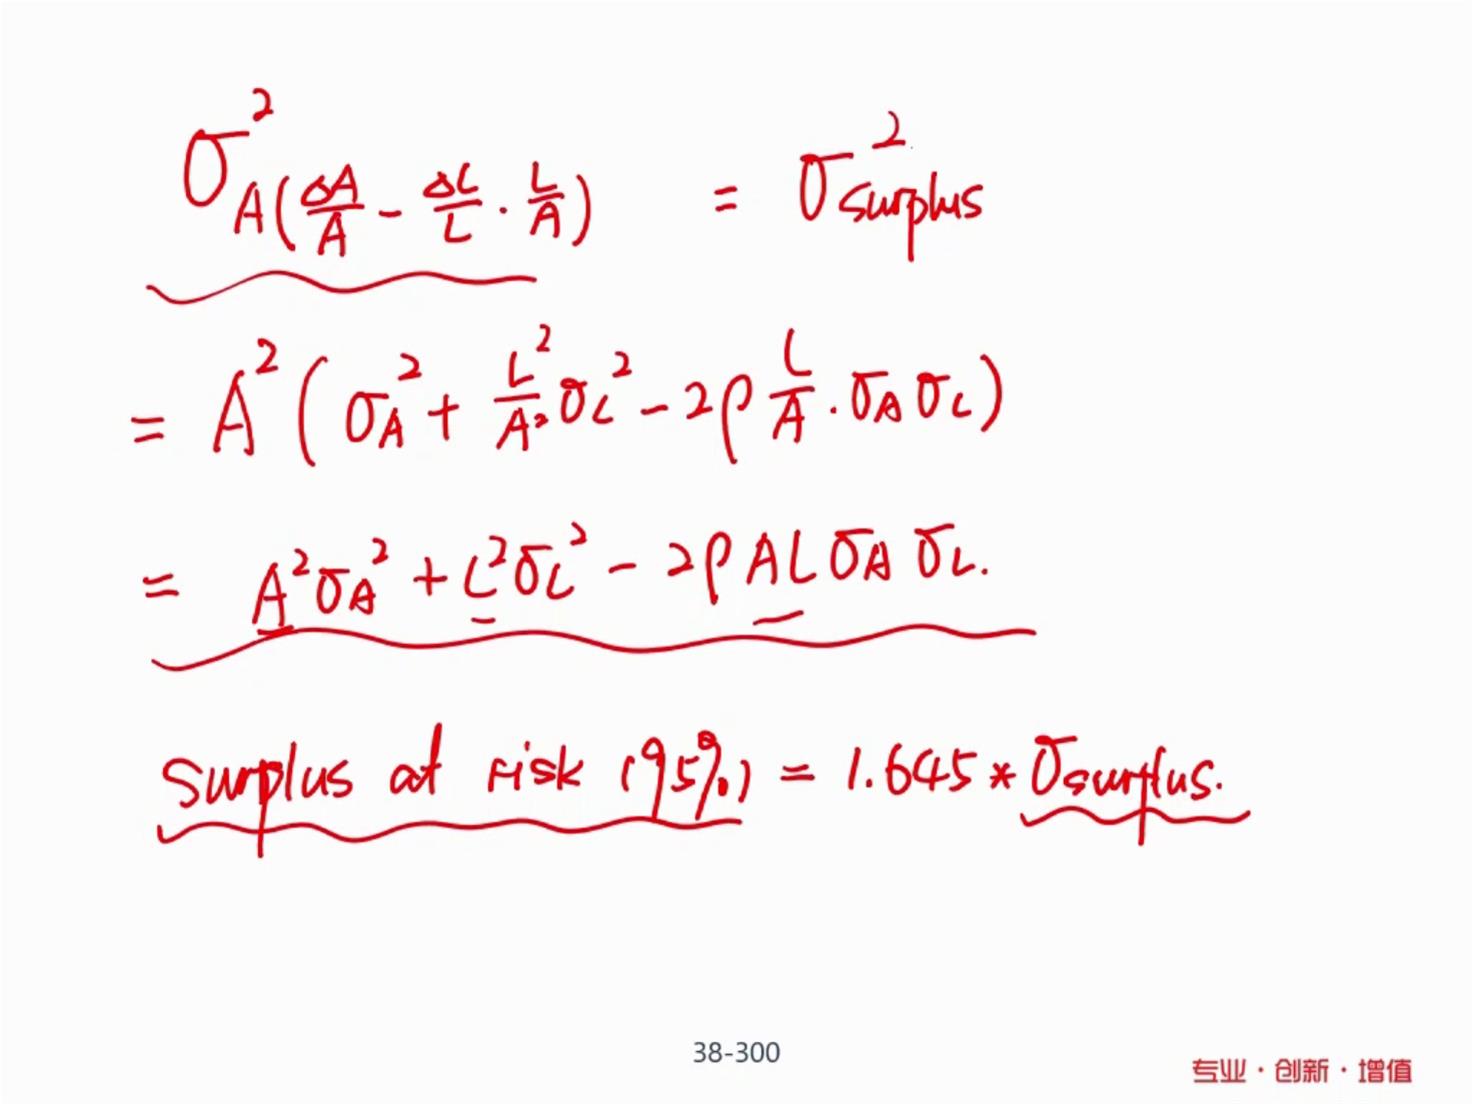 σ²_A(ΔA/A - ΔL/L · L/A) = σ²_surplus
= A²(σ_A² + L²/A² σ_L² - 2ρ L/A · σ_A σ_L)
= A²σ_A² + L²σ_L² - 2ρALσ_Aσ_L.
surplus at risk (95%) = 1.645 * σ_surplus.
38-300
专业·创新·增值